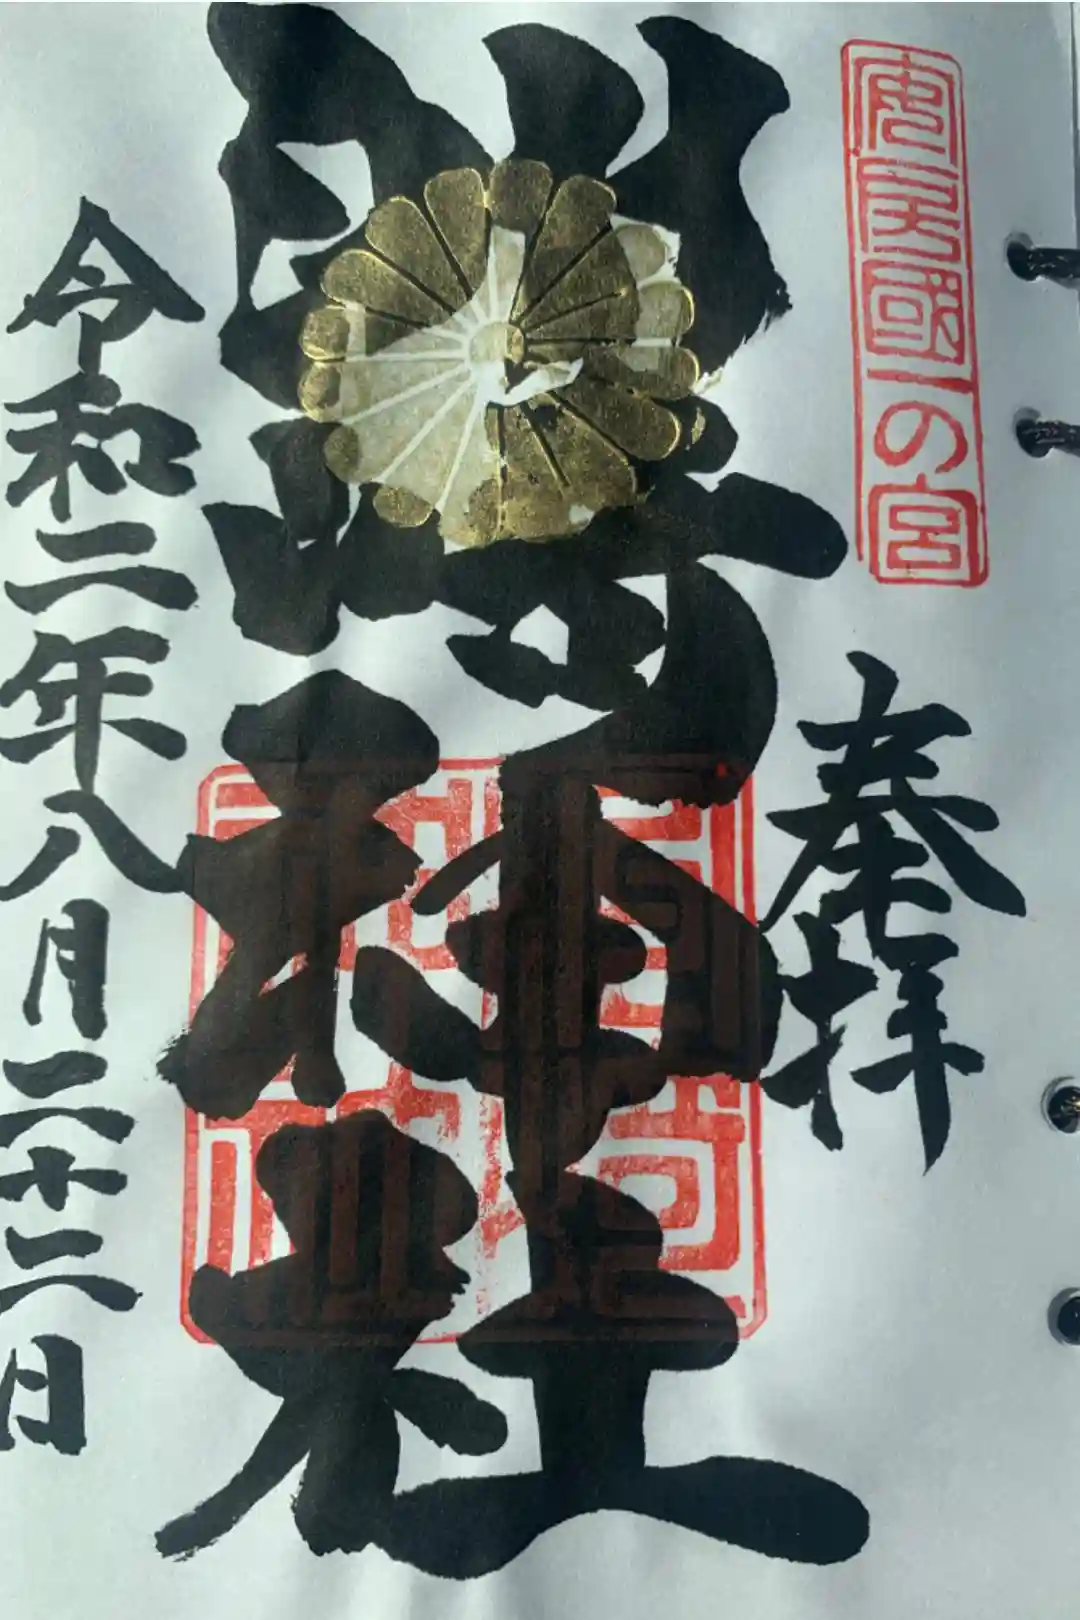 安房國一の宮
奉拝
洲崎神社
令和二年八月二十二日